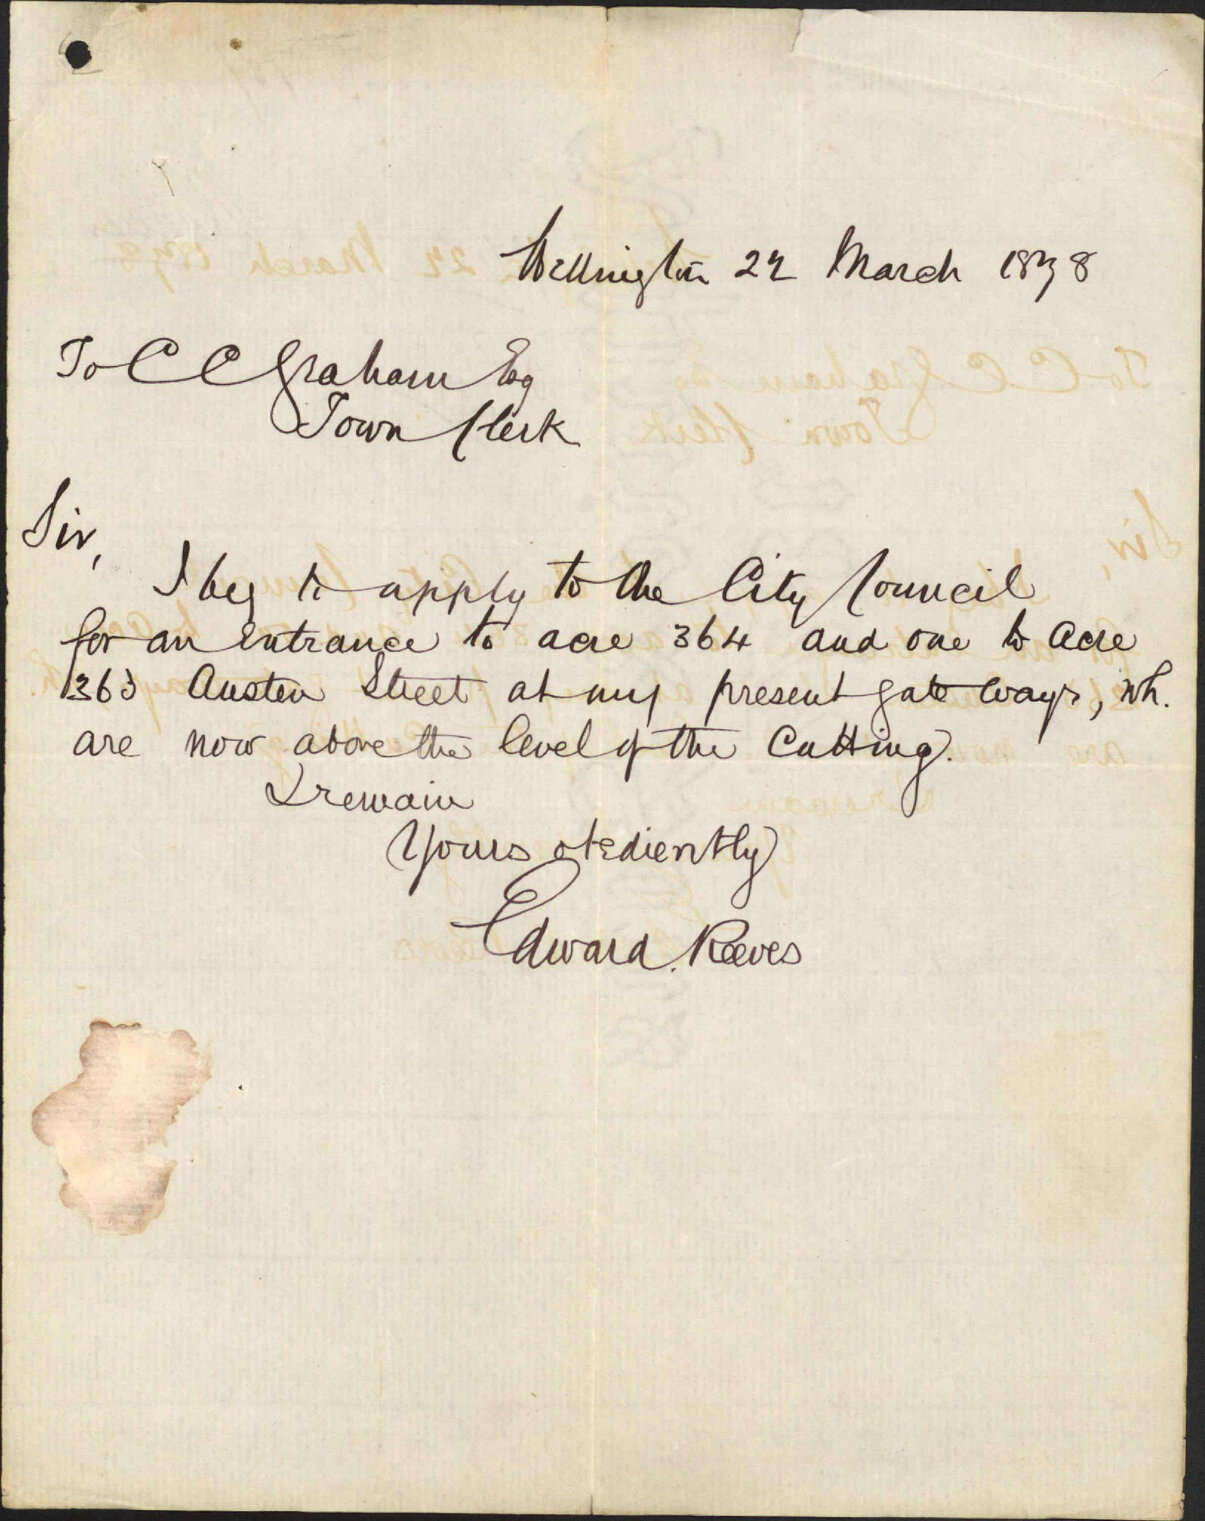 Wellington 22 March 1878
To C C Graham Esq
Town Clerk
Sir,
I beg to apply to the City Council
for an entrance to acre 364 and one to acre
363 Austen Street at my present gate ways, wh.
are now above the level of the Cutting.
I remain
Yours obediently
Edward. Reeves